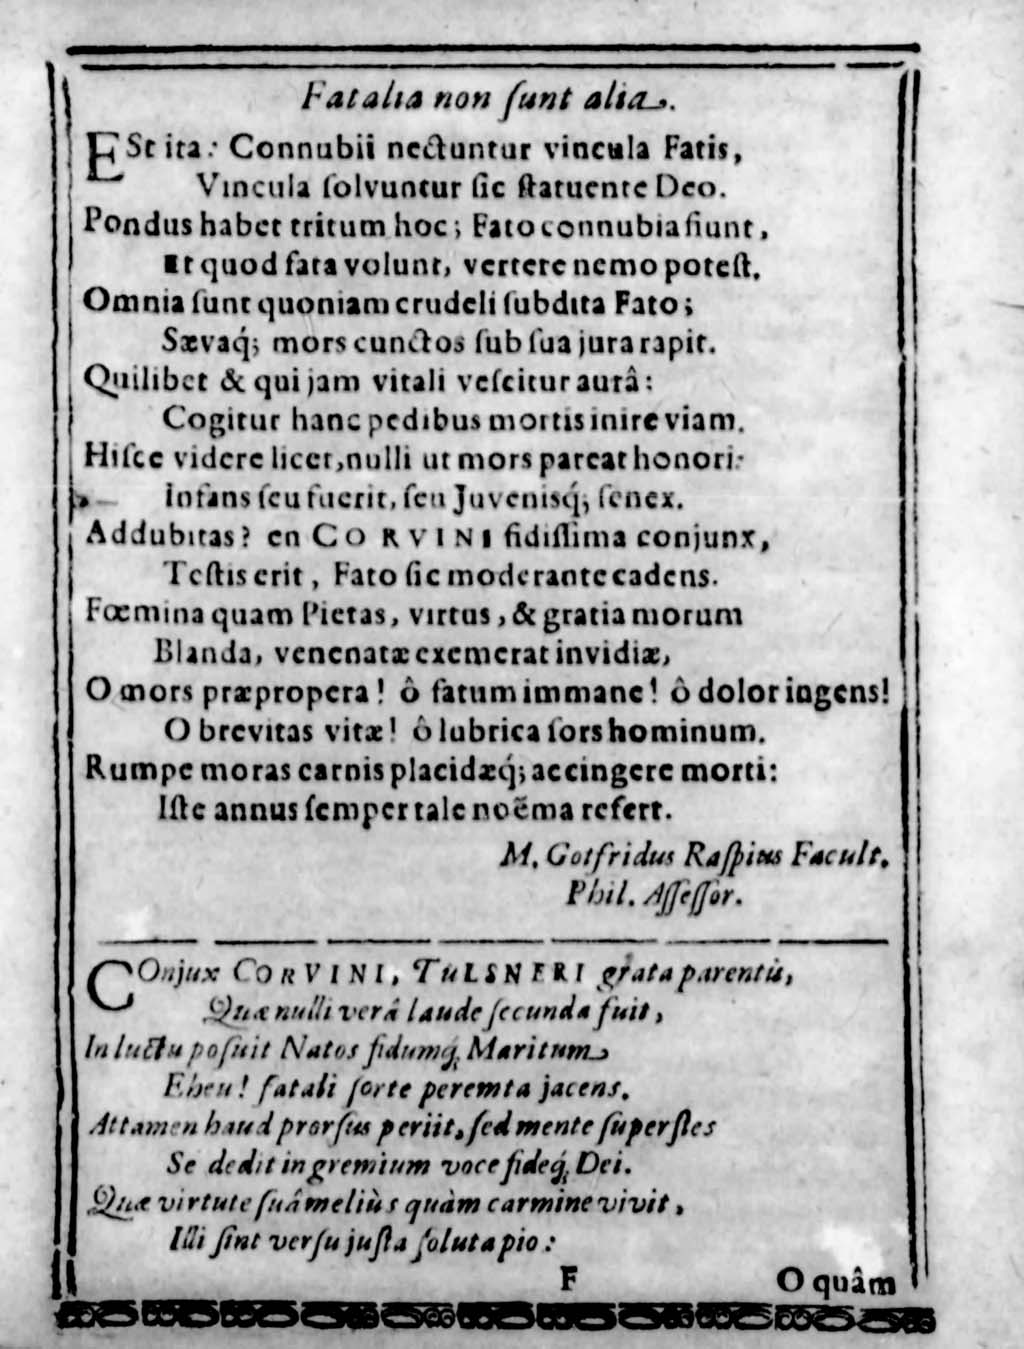 Fatalia non ſunt alia.
ESt ita: Connubii nectuntur vincula Fatis,
Vincula ſolvuntur ſic ſtatuente Deo.
Pondus habet tritum hoc; Fato connubia fiunt,
Et quod fata volunt, vertere nemo poteſt.
Omnia ſunt quoniam crudeli ſubdita Fato;
Sævaq́; mors cunctos ſub ſua jura rapit.
Quilibet & qui jam vitali veſcitur aurâ:
Cogitur hanc pedibus mortis inire viam.
Hiſce videre licet, nulli ut mors pareat honori:
Infans ſeu fuerit, ſeu Juvenisq́; ſenex.
Addubitas? en CORVINI fidiſſima conjunx,
Teſtis erit, Fato ſic moderante cadens.
Fœmina quam Pietas, virtus, & gratia morum
Blanda, venenatæ exemerat invidiæ,
O mors præpropera! ô fatum immane! ô dolor ingens!
O brevitas vitæ! ô lubrica ſors hominum.
Rumpe moras carnis placidæq́; accingere morti:
Iſte annus ſemper tale noëma refert.
M. Gotfridus Raſpius Facult.
Phil. Aſſeſſor.
COnjux CORVINI, TULSNERI grata parentù,
Quæ nulli verâ laude ſecunda fuit,
In luctu poſuit Natos fidumq́; Maritum
Eheu! fatali ſorte peremta jacens.
Attamen haud prorſus periit, ſed mente ſuperſtes
Se dedit in gremium voce fideq́; Dei.
Quæ virtute ſuâ meliùs quàm carmine vivit,
Illi ſint verſu juſta ſoluta pio:
F
O quâm